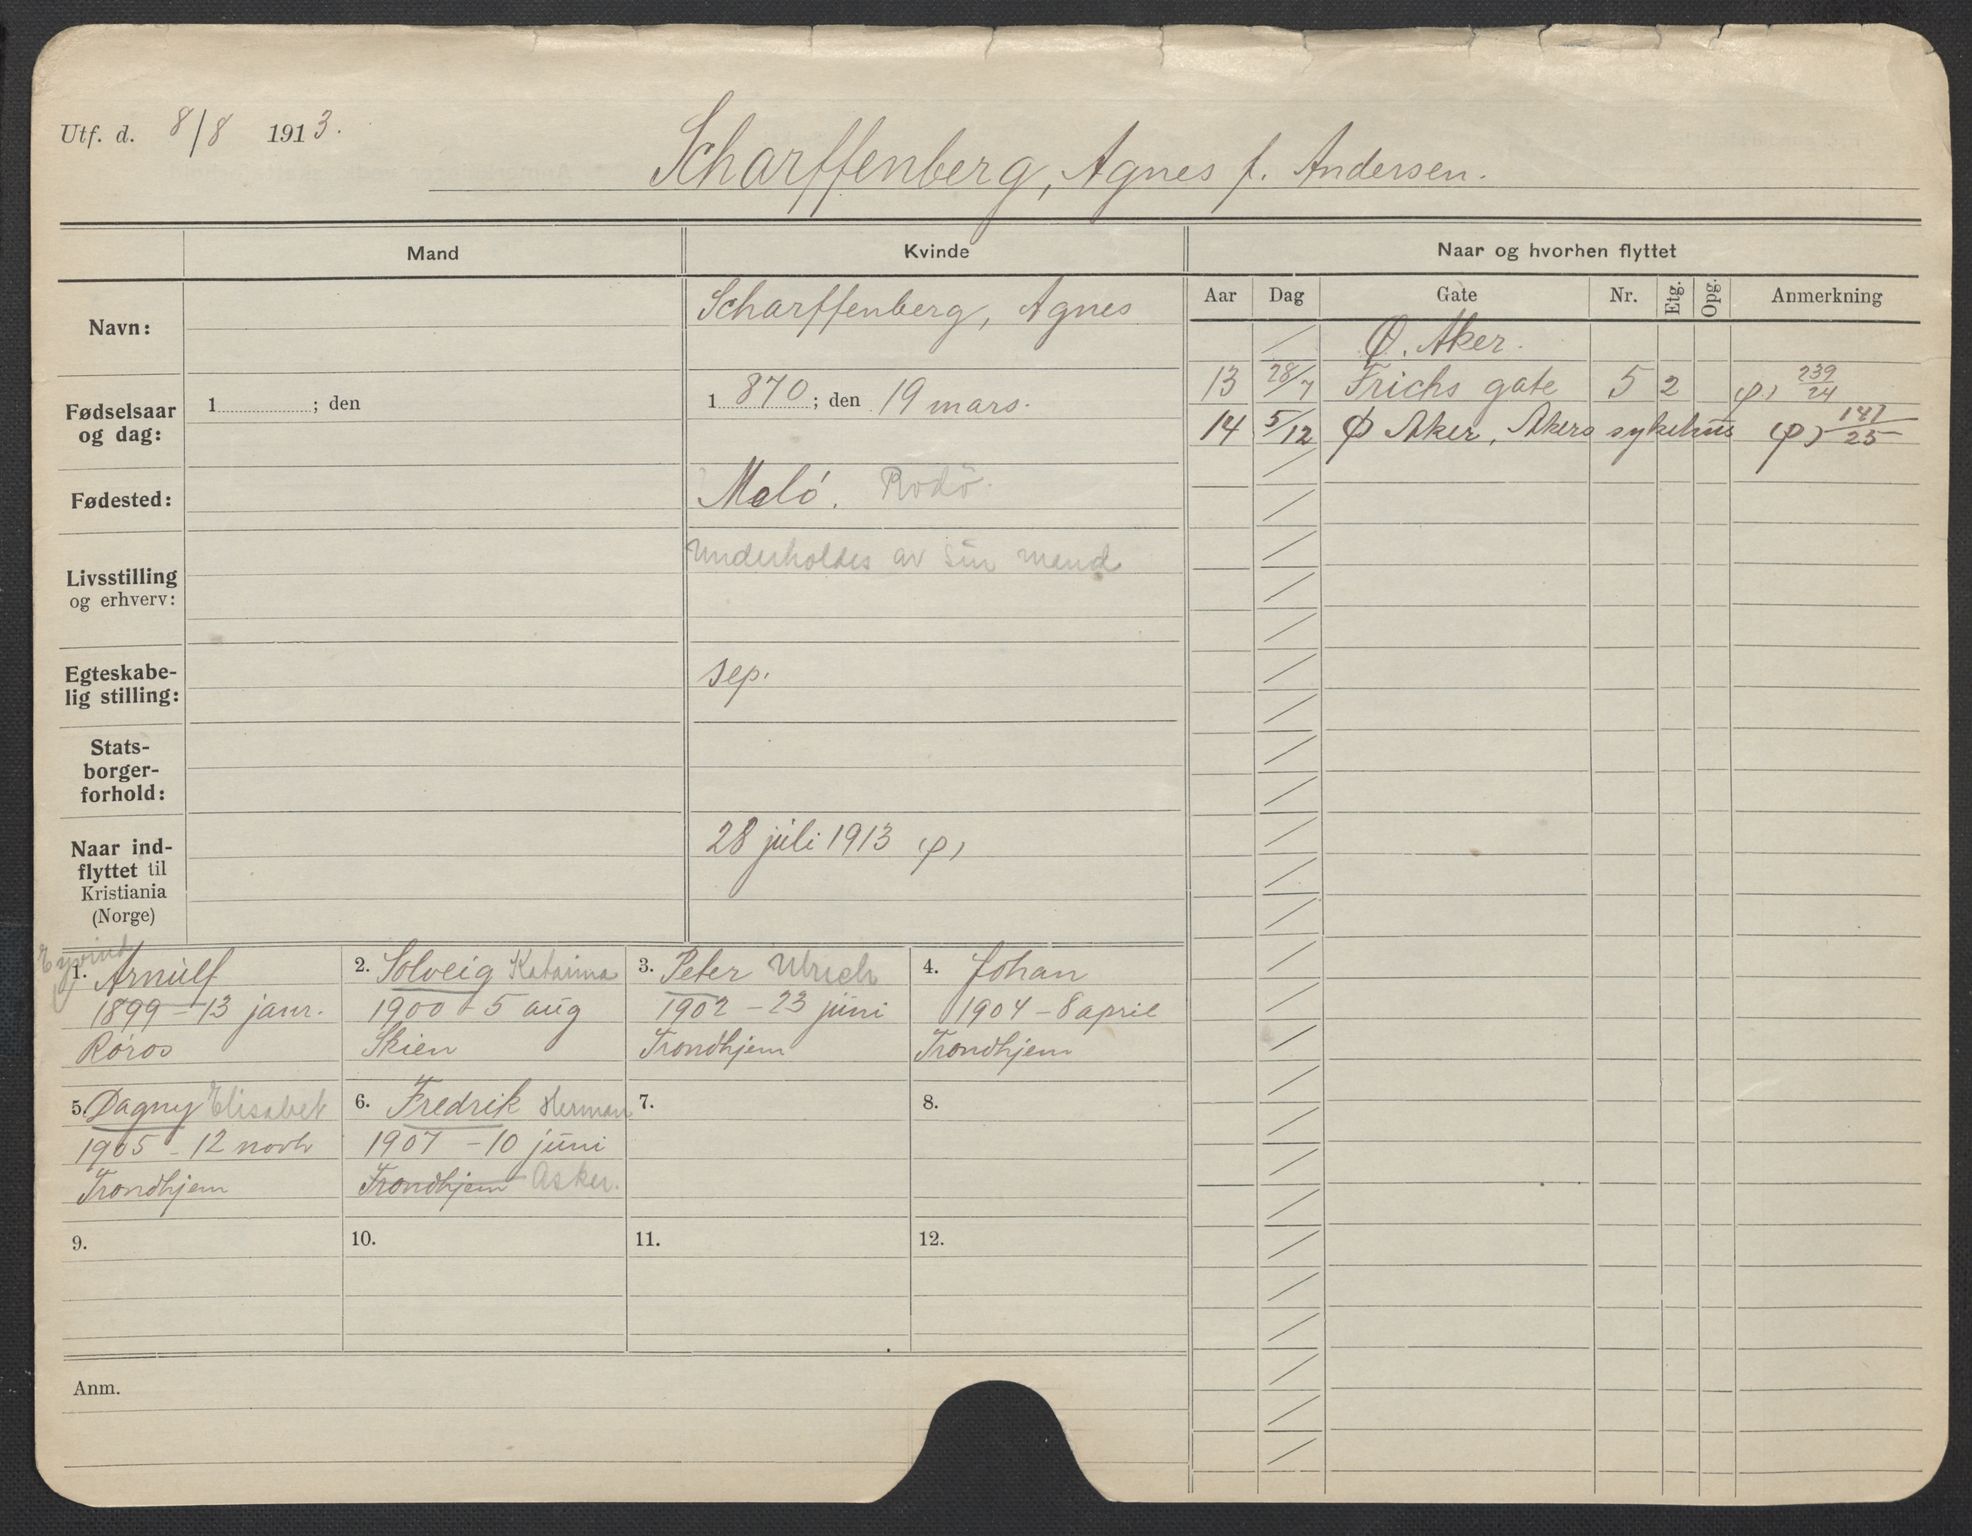 Utf. d. 8/8 1913.
Scharffenberg, Agnes f. Andersen.
Mand
Kvinde
Naar og hvorhen flyttet
Aar Dag Gate Nr. Etg. Opg. Anmerkning
Navn:
Scharffenberg, Agnes
Fødselsaar og dag:
1 ; den
1870; den 19 mars.
Fødested:
Melö. Rodö.
Livsstilling
og erhverv:
Underholdes av sin mand
Egteskabe-
lig stilling:
sep.
Stats-
borger-
forhold:
Naar ind-
flyttet til
Kristiania
(Norge)
28 juli 1913 (p)
Ø. Aker.
13 28/7 Frichs gate 5 2 (p) 239/24
14 5/12 Ø Aker, Akers sykehus (p) 141/25
Eyvind
1. Arnulf
1899 - 13 janr.
Röros
2. Solveig Katarina
1900 - 5 aug
Skien
3. Peter Ulrich
1902 - 23 juni
Trondhjem
4. Johan
1904 - 8 april
Trondhjem
5. Dagny Elisabet
1905 - 12 novbr
Trondhjem
6. Fredrik Herman
1907 - 10 juni
Trondhjem Asker.
7.
8.
9.
10.
11.
12.
Anm.